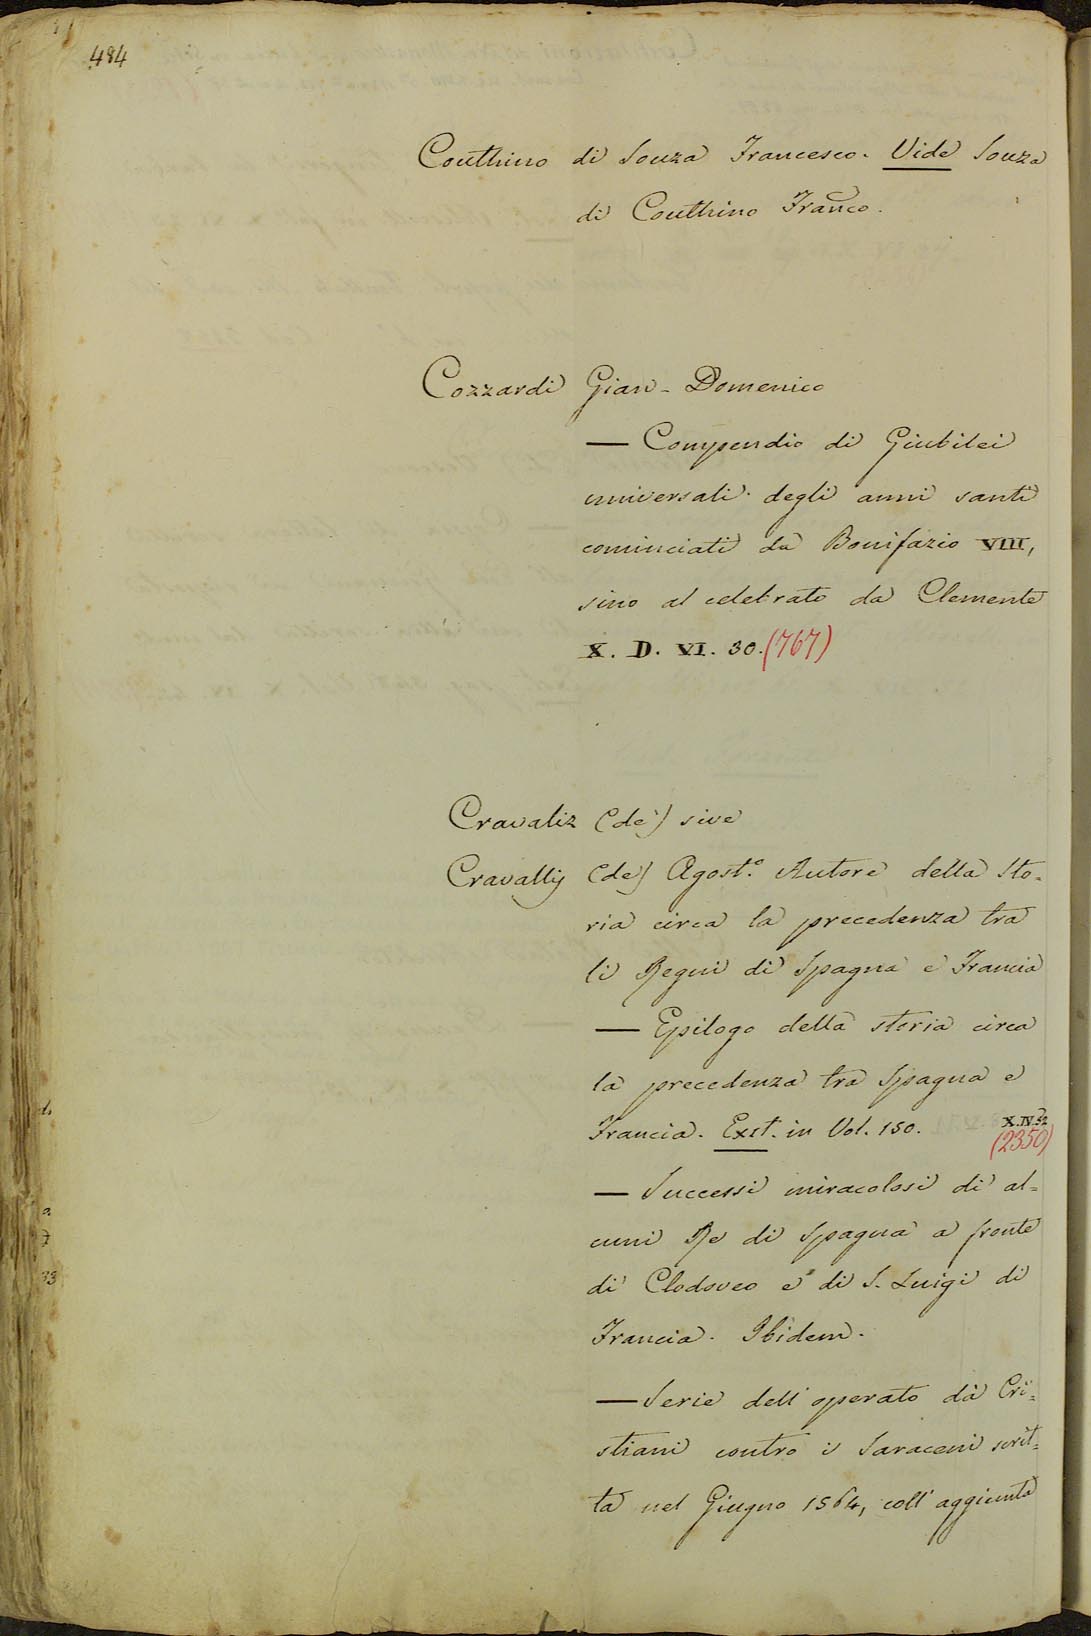 484
Couthino di Souza Francesco. Vide Souza
di Couthino Franco.
Cozzardi Gian-Domenico
— Compendio di Giubilei
universali degli anni santi
cominciati da Bonifazio VIII,
sino al celebrato da Clemente
X. D. VI. 30. (767)
Cravaliz (de) sive
Cravallij (de) Agost.º Autore della Sto-
ria circa la precedenza tra
li Regni di Spagna e Francia
— Epilogo della storia circa
la precedenza tra Spagna e
Francia. Exst. in Vol. 150. X.IV.32
(2350)
— Successi miracolosi di al=
cuni Re di Spagna a fronte
di Clodoveo e di S. Luigi di
Francia. Ibidem.
— Serie dell'operato da Cri=
stiani contro i Saraceni scrit=
ta nel Giugno 1564, coll'aggiunta